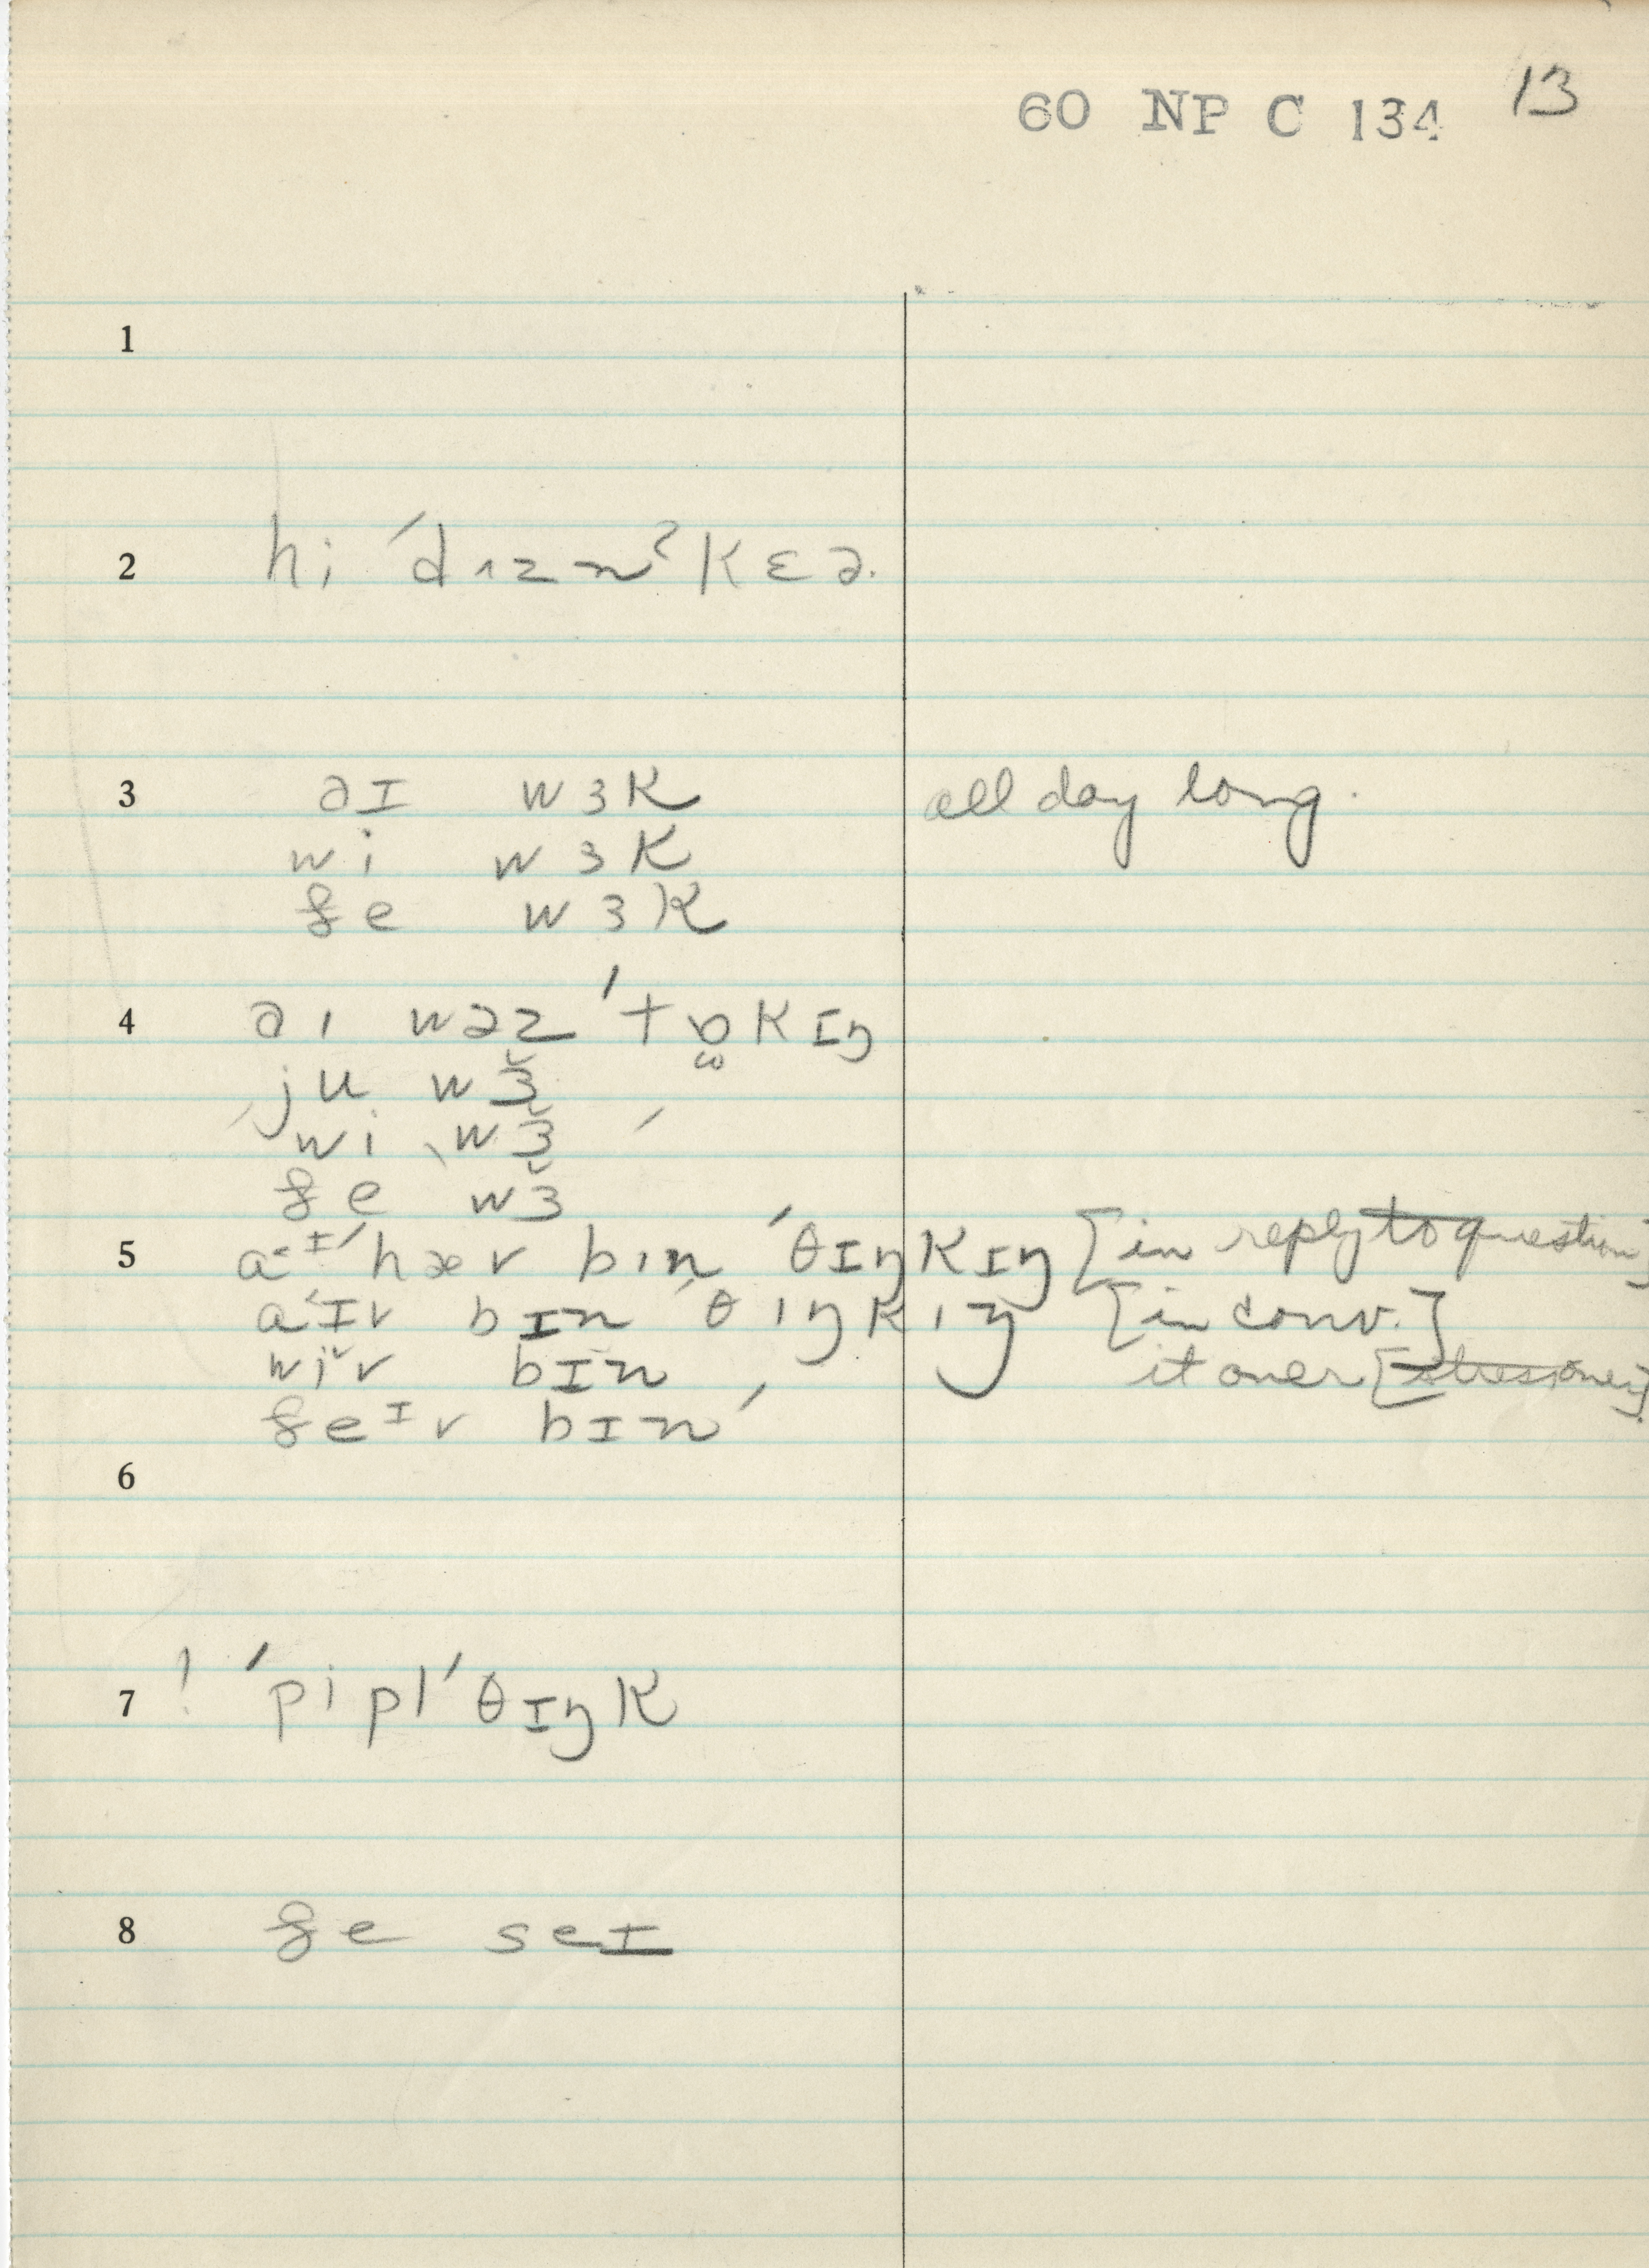 60 NP C 134 13
1
2 hi ˈdɪzn̩ˀkɛə.
3 əɪ wɜk all day long.
wi wɜk
ðe wɜk
4 əɪ wəz ˈtɒkɪŋ
ju wɜ̆
wi wɜ̆
ðe wɜ̆
5 aɪ ˈhæv bɪn ˈθɪŋkɪŋ [in reply to question]
aɪv bɪn ˈθɪŋkɪŋ [in conv.]
wiv bɪn it over
ðeɪv bɪn ˈ
6
7 ! ˈpiplˈθɪŋk
8 ðe seɪ